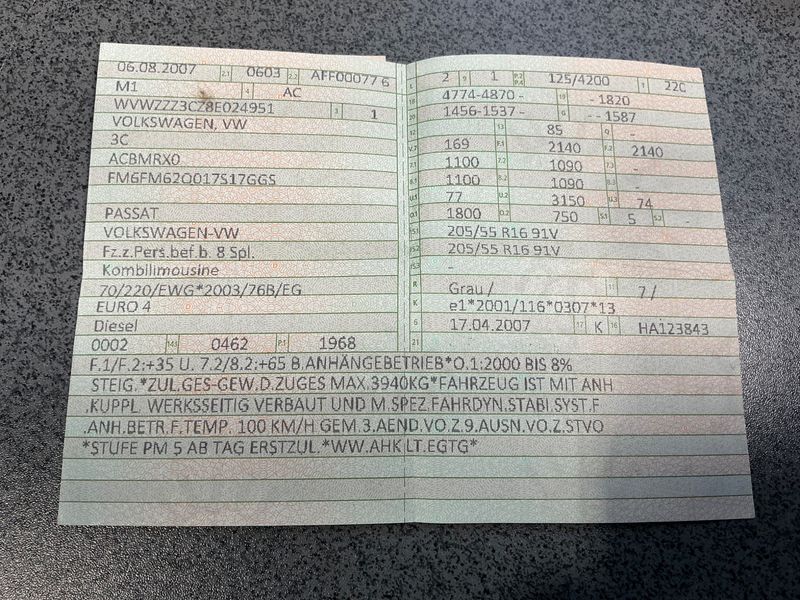 06.08.2007 2.1 0603 2.2 AFF00077 6
M1 4 AC
WVWZZZ3CZ8E024951 3 1
VOLKSWAGEN, VW
3C
ACBMRX0
FM6FM62Q017S17GGS
PASSAT
VOLKSWAGEN-VW
Fz.z.Pers.bef.b. 8 Spl.
Kombilimousine
70/220/EWG*2003/76B/EG
EURO 4
Diesel
0002 14.1 0462 P.1 1968
L 2 9 1 P.2 P.4 125/4200 T 22C
18 4774-4870 - 19 - - 1820
20 1456-1537 - G - - 1587
12 - 13 85 Q -
V.7 169 F.1 2140 F.2 2140
7.1 1100 7.2 1090 7.3 -
8.1 1100 8.2 1090 8.3 -
U.1 77 U.2 3150 U.3 74
O.1 1800 O.2 750 S.1 5 S.2 -
15.1 205/55 R16 91V
15.2 205/55 R16 91V
15.3 -
R Grau / 11 7 /
K e1*2001/116*0307*13
6 17.04.2007 17 K 16 HA123843
21
F.1/F.2:+35 U. 7.2/8.2:+65 B.ANHÄNGEBETRIEB*O.1:2000 BIS 8%
STEIG.*ZUL.GES-GEW.D.ZUGES MAX.3940KG*FAHRZEUG IST MIT ANH
.KUPPL. WERKSSEITIG VERBAUT UND M.SPEZ.FAHRDYN.STABI.SYST.F
.ANH.BETR.F.TEMP. 100 KM/H GEM.3.AEND.VO.Z.9.AUSN.VO.Z.STVO
*STUFE PM 5 AB TAG ERSTZUL.*WW.AHK LT.EGTG*